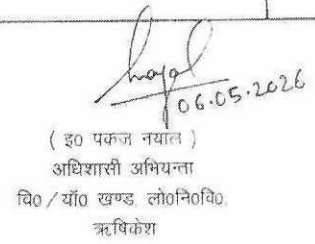 06.05.2026
( इ0 पकज नयाल )
अधिशासी अभियन्ता
वि0/यॉ0 खण्ड, लो0नि0वि0,
ऋषिकेश